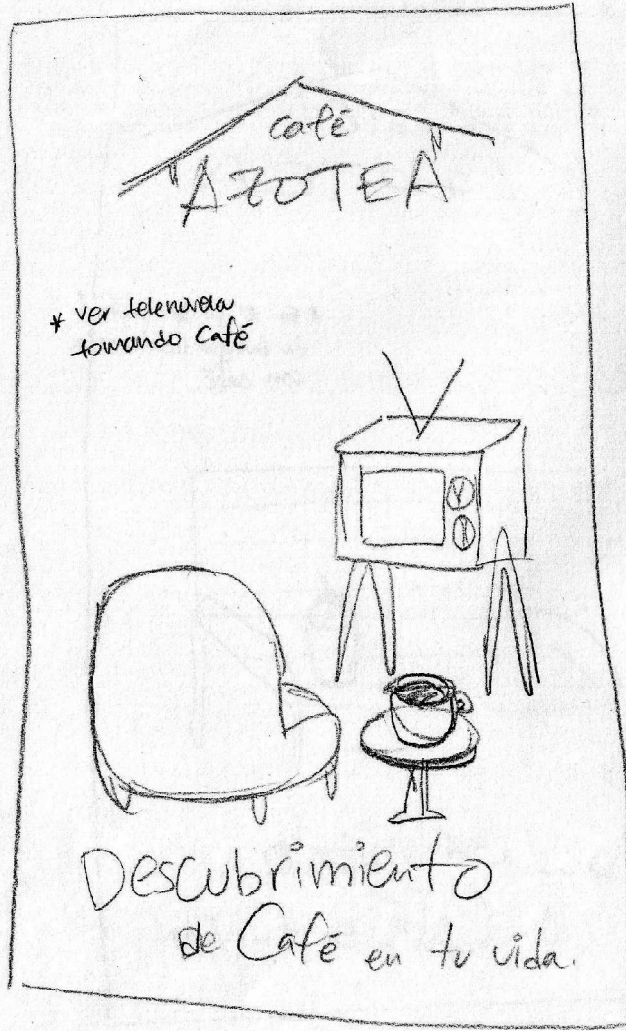 café
AZOTEA
* ver telenovela
tomando Café
Descubrimiento
de Café en tu vida.